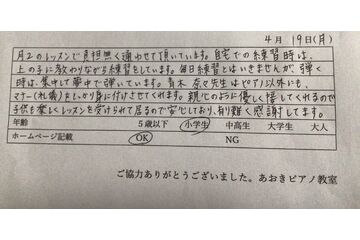 4月 19日(月)
月2のレッスンで負担無く通わせて頂いています。自宅での練習時は、
上の子に教わりながら練習をしています。毎日練習とはいきませんが、弾く
時は、集中して夢中で弾いています。青木 奈々先生はピアノ以外にも、
マナー(礼儀)をしっかり身に付けさせてくれます。親心のように優しく接してくれるので
子供も楽しくレッスンを受けられて居るので安心しており、有り難く感謝してます。
年齢 5歳以下 小学生 中高生 大学生 大人
ホームページ記載 OK NG
ご協力ありがとうございました。あおきピアノ教室